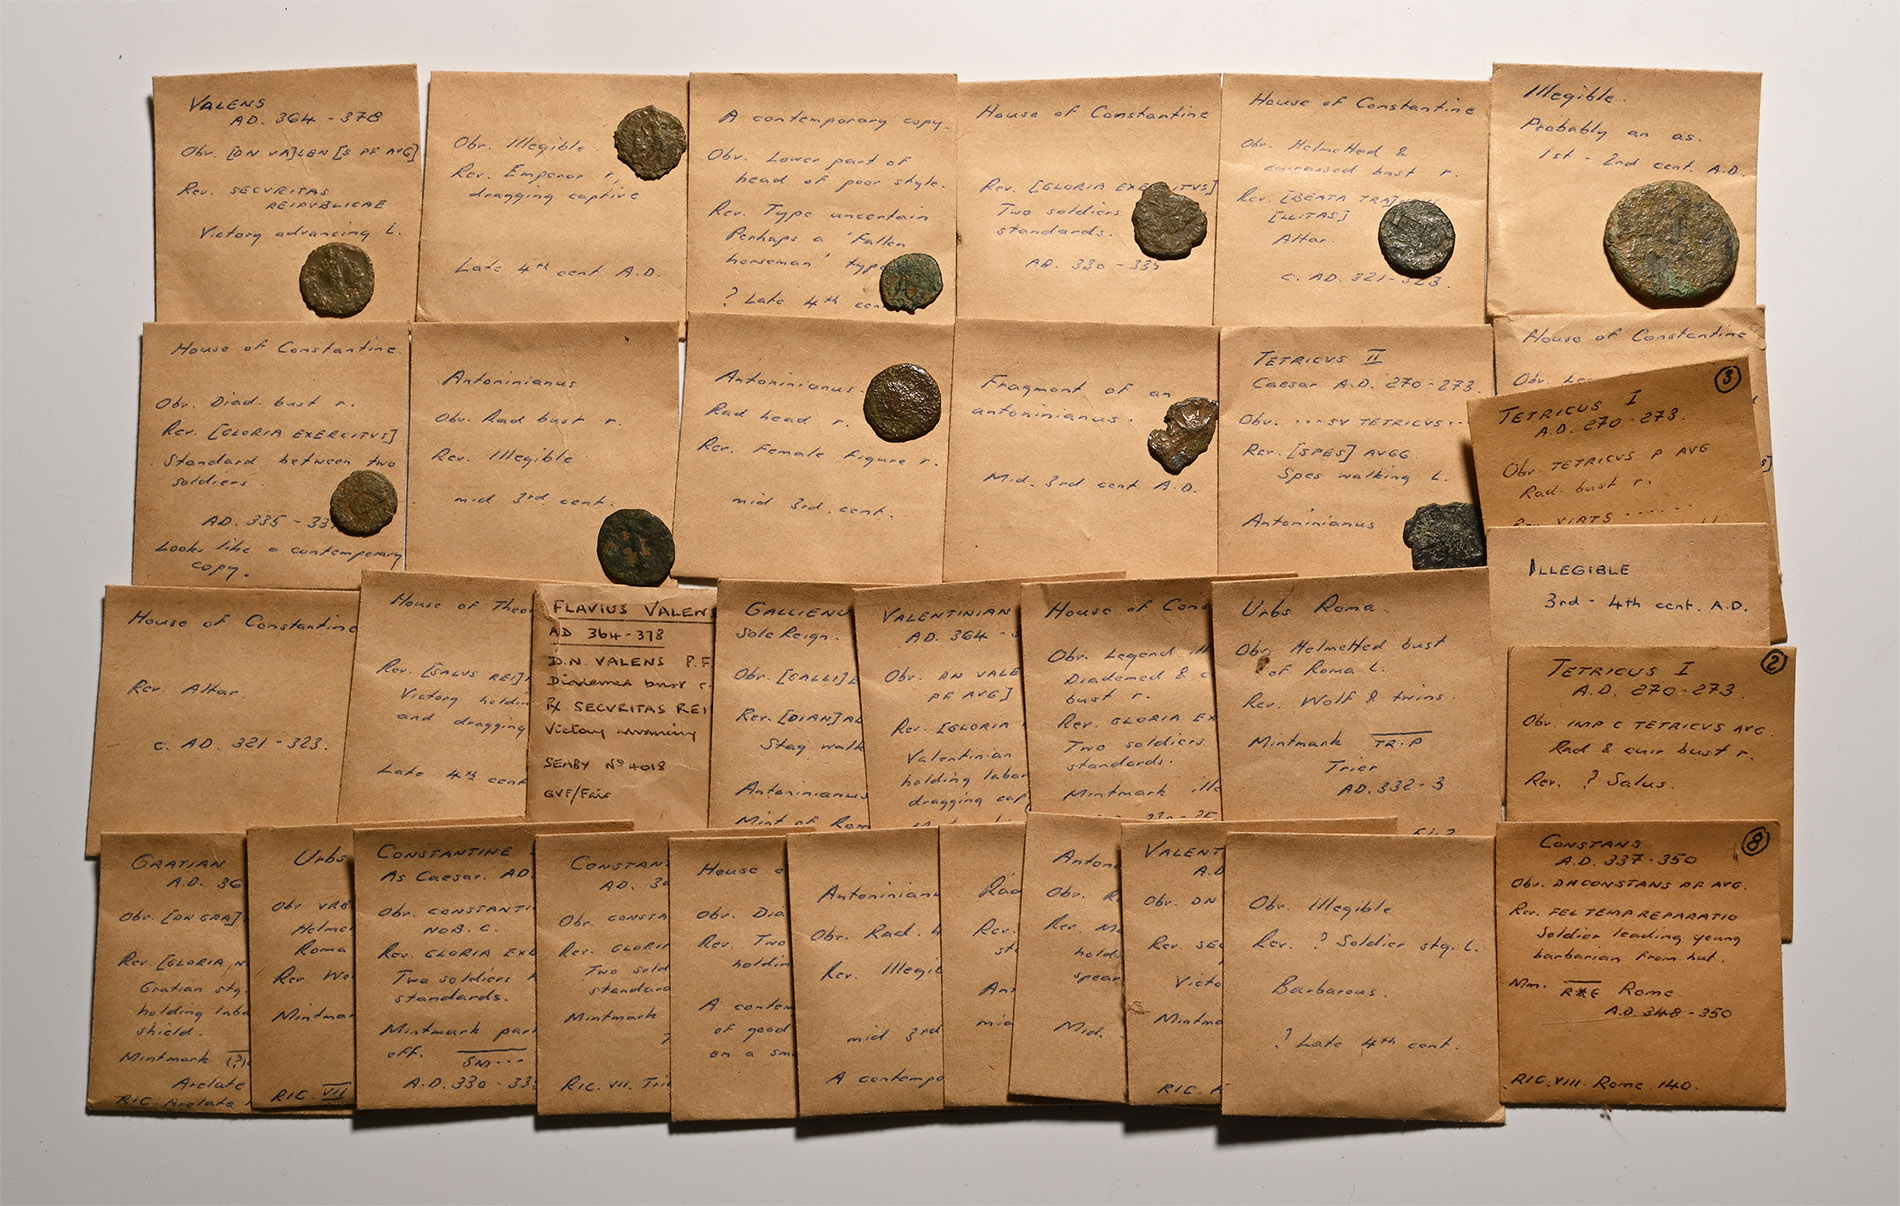 VALENS
AD. 364 - 378
Obv. [DN VA]LEN [S PF AVG]
Rev. SECVRITAS
REIPVBLICAE
Victory advancing L.
Obv. Illegible
Rev. Emperor r,
dragging captive
Late 4th cent A.D.
A contemporary copy.
Obv. Lower part of
head of poor style.
Rev. Type uncertain
Perhaps a 'Fallen
horseman' type
? Late 4th cen
House of Constantine
Rev. [GLORIA EXERCITVS]
Two soldiers
standards.
AD. 330 - 335
House of Constantine
Obv. Helmetted &
cuirassed bust r.
Rev. [BEATA TRA]
[LLITAS]
Altar.
c. AD. 321-323.
Illegible.
Probably an as.
1st - 2nd cent. A.D.
House of Constantine
Obv. Diad. bust r.
Rev. [GLORIA EXERCITVS]
Standard between two
soldiers.
AD. 335 - 33
Looks like a contemporary
copy.
Antoninianus
Obv. Rad bust r.
Rev. Illegible
mid 3rd cent.
Antoninianus.
Rad head r.
Rev. Female figure r.
mid 3rd. cent.
Fragment of an
antoninianus.
Mid. 3rd cent A.D.
TETRICUS II
Caesar A.D. 270-273.
Obv. ...SV TETRICVS...
Rev. [SPES] AVGG
Spes walking L.
Antoninianus
House of Constantine
Obv.
3
TETRICUS I
A.D. 270-273.
Obv. TETRICVS P AVG
Rad. bust r.
VIRTS ......
ILLEGIBLE
3rd - 4th cent. A.D.
House of Constantine
Rev. Altar.
c. AD. 321-323.
House of Theo
Rev. [SALVS REI]
Victory holdin
and dragging
Late 4th cent
FLAVIUS VALENS
AD 364-378
D.N. VALENS P.F
Diademed bust r.
Rx SECVRITAS REI
Victory advancing
SEABY No 4018
GVF/Fair
GALLIENU
Sole Reign.
Obv. [GALLI]E
Rev. [DIAN]AE
Stag walk
Antoninianus
Mint of Rom
VALENTINIAN
AD. 364 -
Obv. DN VALE
PF AVG]
Rev. [GLORIA
Valentinian
holding labar
dragging cap
House of Cons
Obv. Legend ill
Diademed & c
bust r.
Rev. GLORIA EX
Two soldiers
standards.
Mintmark ille
Urbs Roma.
Obv. Helmetted bust
of Roma L.
Rev. Wolf & twins.
Mintmark TR.P
Trier
AD. 332-3
2
TETRICUS I
A.D. 270-273.
Obv. IMP C TETRICVS AVG.
Rad & cuir bust r.
Rev. ? Salus.
GRATIAN
A.D. 36
Obv. [DN GRA]
Rev. [GLORIA N
Gratian stg.
holding laba
shield.
Mintmark
Arelate
RIC. Arelate
Urbs
Obv VRB
Helme
Roma
Rev Wo
Mintmar
RIC. VII
CONSTANTINE
As Caesar. AD.
Obv. CONSTANTI
NOB. C.
Rev. GLORIA EXE
Two soldiers
standards.
Mintmark part
off. SM...
A.D. 330 - 33
CONSTAN
AD. 3
Obv. CONSTA
Rev. GLORI
Two sold
standard
Mintmark
RIC. VII. Tri
House o
Obv. Dia
Rev. Two
holdin
A contem
of good
on a sm
Antoninian
Obv. Rad. h
Rev. Illegib
mid 3rd
A contempo
Rad
Rev.
st
Ant
mid
Anton
Obv. R
Rev. M
holdi
spear
Mid.
VALENT
A.D
Obv. DN
Rev. SEC
Victo
Mintma
RIC.
Obv. Illegible
Rev. ? Soldier stg. L.
Barbarous.
? Late 4th cent.
8
CONSTANS
A.D. 337-350
Obv. DN CONSTANS PF AVG.
Rev. FEL TEMP REPARATIO
Soldier leading young
barbarian from hut.
Mm. R*E Rome.
A.D. 348-350
RIC. VIII. Rome. 140.